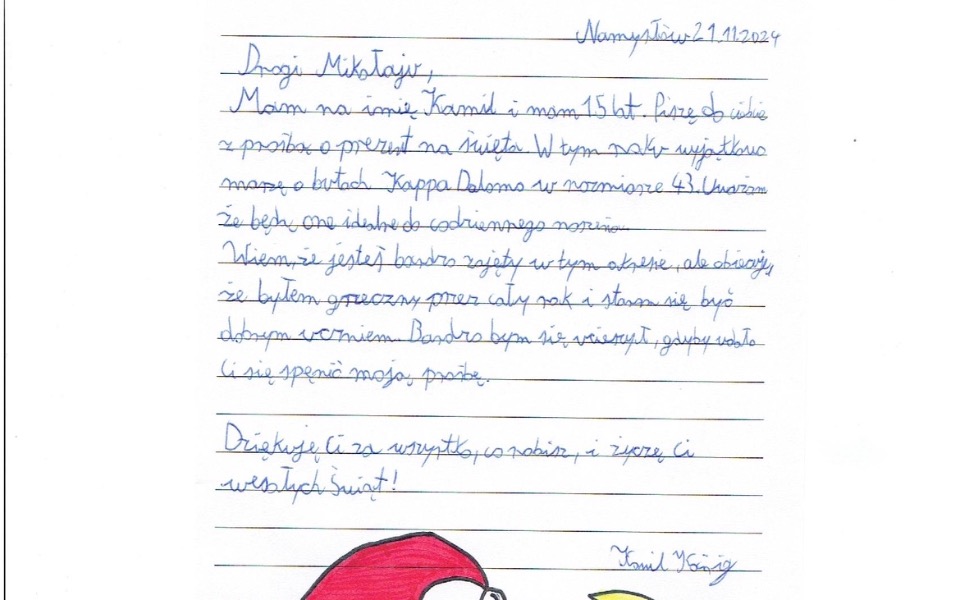 Namysłów 21.11.2024
Drogi Mikołaju,
Mam na imię Kamil i mam 15 lat. Piszę do ciebie
z prośbą o prezent na święta. W tym roku wyjątkowo
marzę o butach Kappa Dolomo w rozmiarze 43. Uważam
że będą one idealne do codziennego noszenia.
Wiem, że jesteś bardzo zajęty w tym okresie, ale obiecuję,
że byłem grzeczny przez cały rok i staram się być
dobrym uczniem. Bardzo bym się ucieszył, gdyby udało
Ci się spęnić moją prośbę.
Dziękuję Ci za wszystko, co robisz, i życzę Ci
wesołych Świąt!
Kamil König